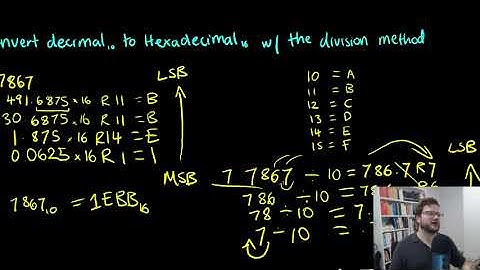 nvert decimal₁₀ to Hexadecimal₁₆ w/ the division method
7867
491.6875×16 R 11 = B
30.6875×16 R 11 = B
1.875×16 R14 = E
0.0625×16 R 1 = 1
LSB
MSB
7867₁₀ = 1EBB₁₆
10 = A
11 = B
12 = C
13 = D
14 = E
15 = F
LSB
7 7867 ÷ 10 = 786.7 R7
786 ÷ 10 =
78 ÷ 10 = 7.
7 ÷ 10 =